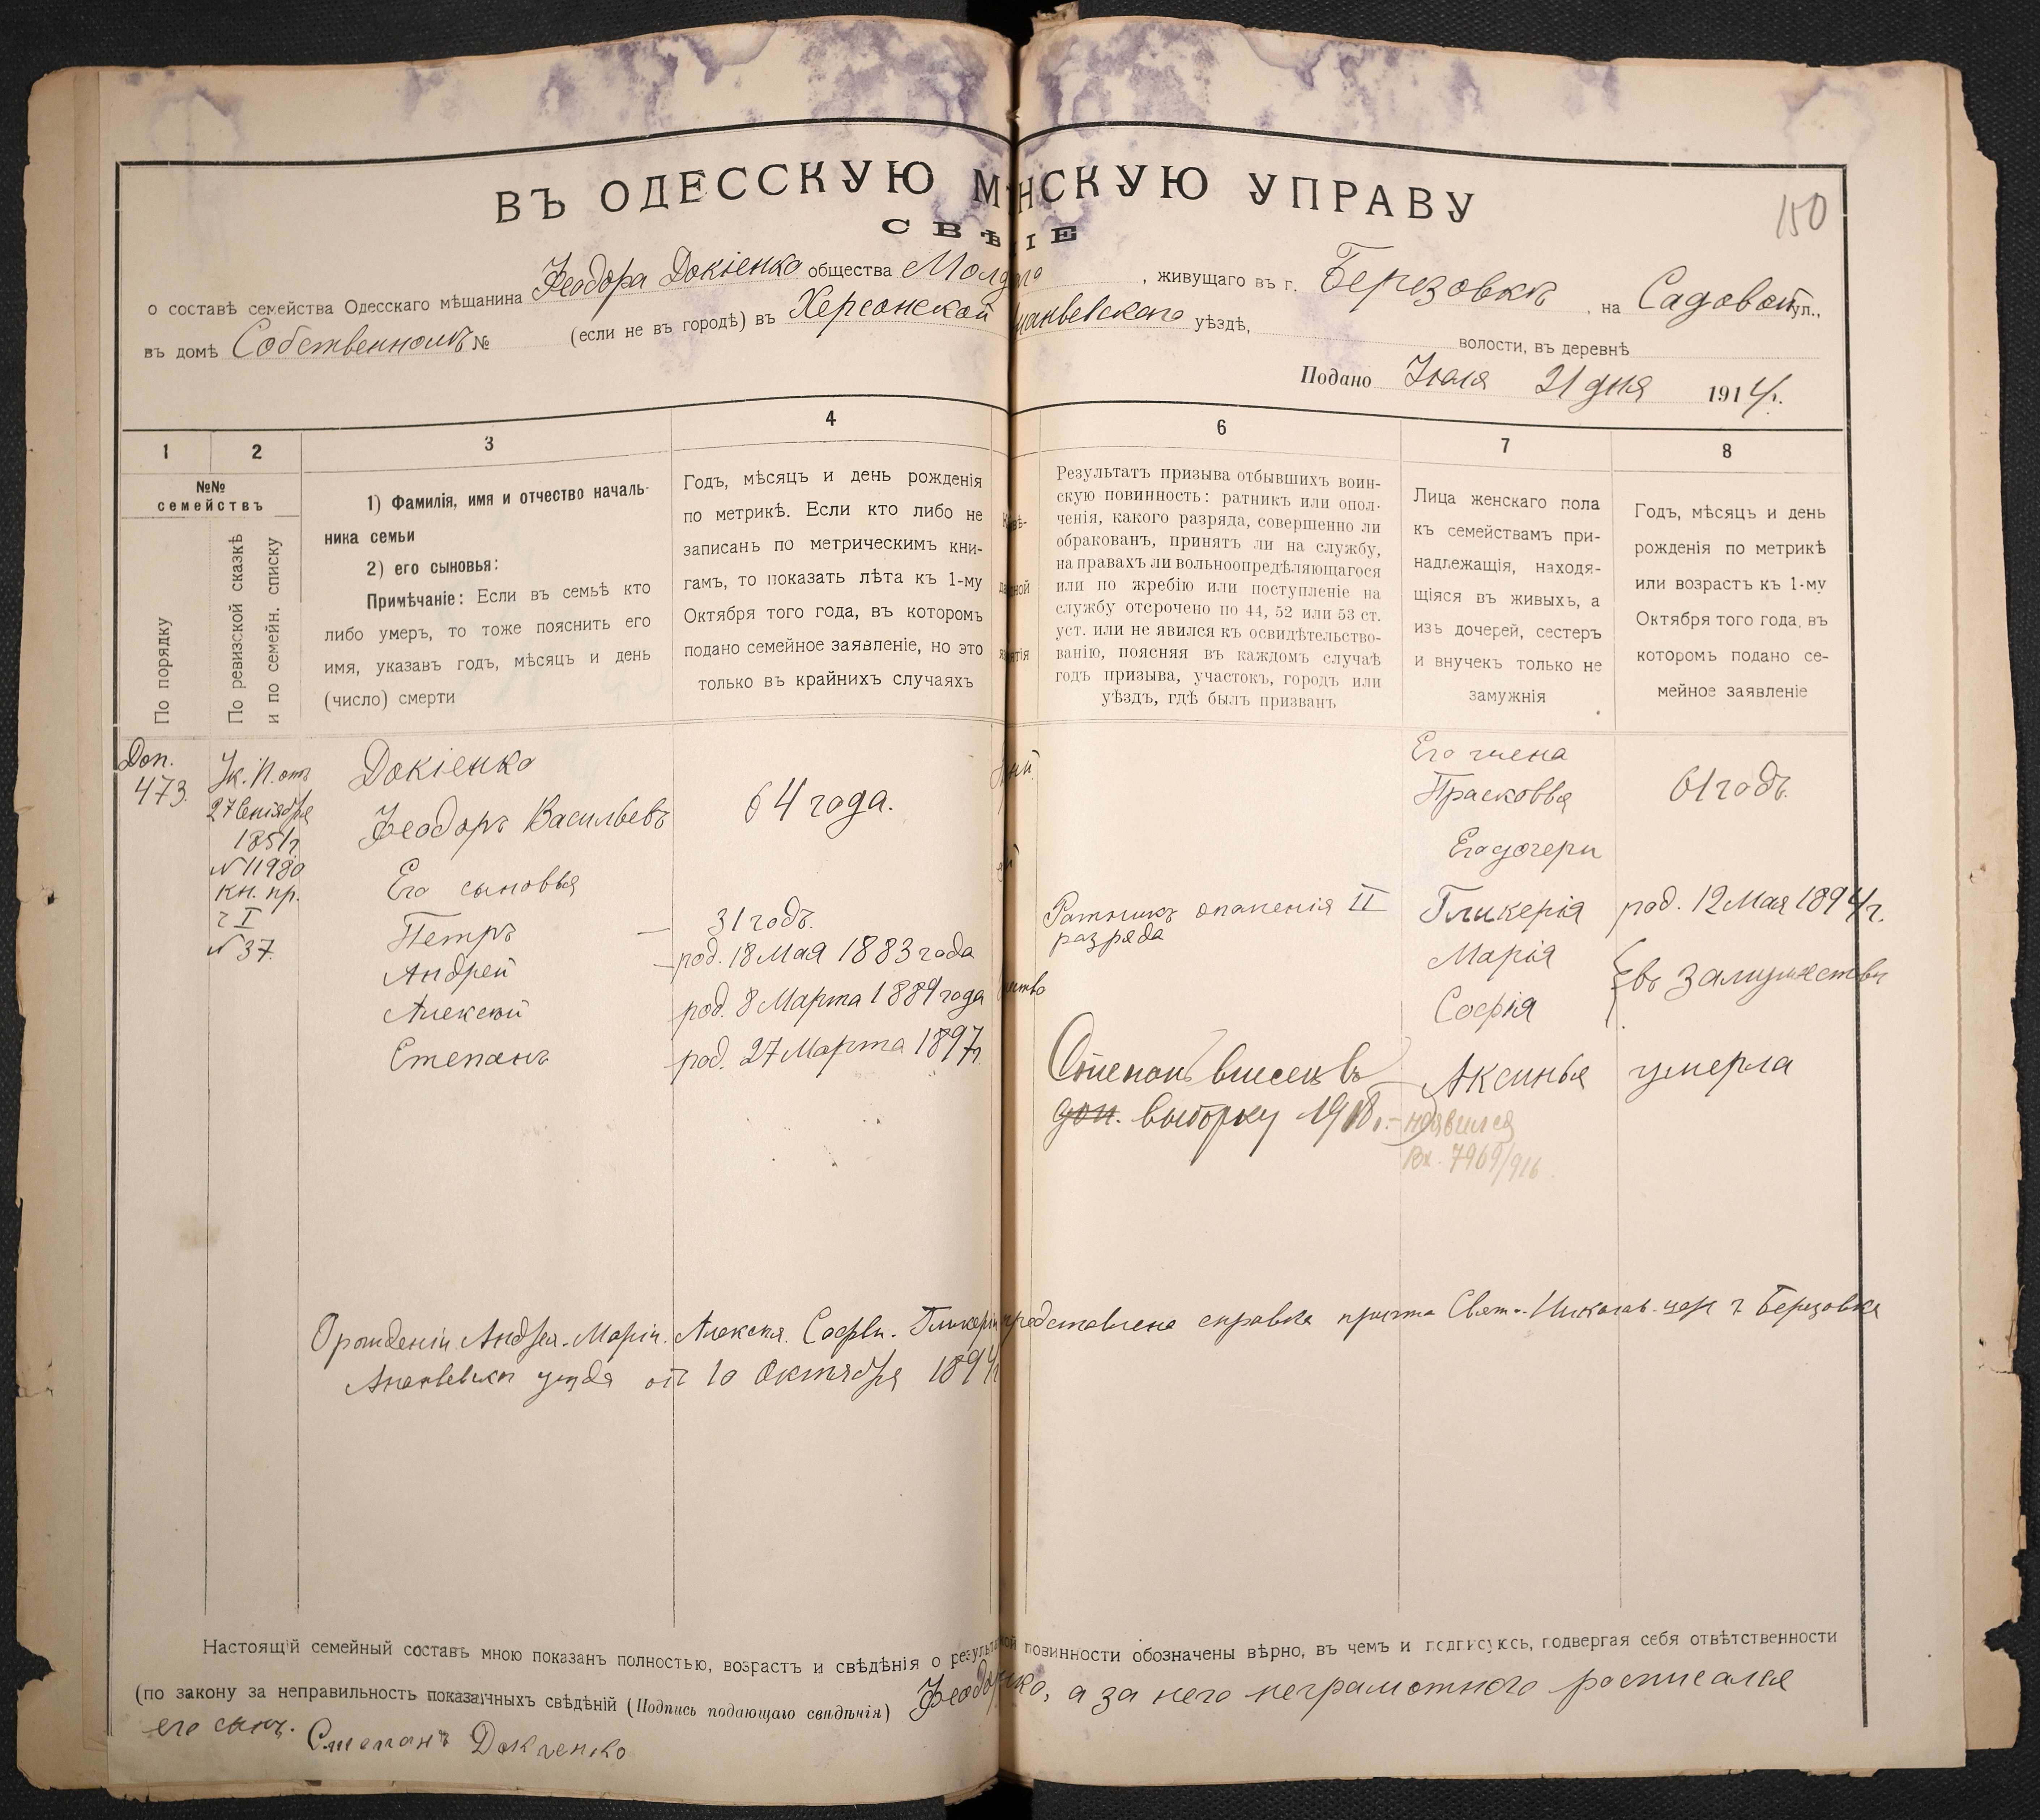 ВЪ ОДЕССКУЮ М НСКУЮ УПРАВУ
150
СВѢ ІЕ
о составѣ семейства Одесскаго мѣщанина Ѳеодора Докіенко общества Молд , живущаго въ г. Березовкѣ , на Садовой ул.,
въ домѣ Собственномъ № (если не въ городѣ) въ Херсонской наньевскаго уѣздѣ, волости, въ деревнѣ
Подано Іюля 21 дня 1914 г.
1 2 3 4 6 7 8
№№
семействъ
По порядку
По ревизской сказкѣ
и по семейн. списку
1) Фамилія, имя и отчество началь-
ника семьи
2) его сыновья:
Примѣчаніе: Если въ семьѣ кто
либо умеръ, то тоже пояснить его
имя, указавъ годъ, мѣсяцъ и день
(число) смерти
Годъ, мѣсяцъ и день рожденія
по метрикѣ. Если кто либо не
записанъ по метрическимъ кни-
гамъ, то показать лѣта къ 1-му
Октября того года, въ которомъ
подано семейное заявленіе, но это
только въ крайнихъ случаяхъ
Результатъ призыва отбывшихъ воин-
скую повинность: ратникъ или опол-
ченія, какого разряда, совершенно ли
обракованъ, принятъ ли на службу,
на правахъ ли вольноопредѣляющагося
или по жребію или поступленіе на
службу отсрочено по 44, 52 или 53 ст.
уст. или не явился къ освидѣтельство-
ванію, поясняя въ каждомъ случаѣ
годъ призыва, участокъ, городъ или
уѣздъ, гдѣ былъ призванъ
Лица женскаго пола
къ семействамъ при-
надлежащія, находя-
щіяся въ живыхъ, а
изъ дочерей, сестеръ
и внучекъ только не
замужнія
Годъ, мѣсяцъ и день
рожденія по метрикѣ
или возрастъ къ 1-му
Октября того года, въ
которомъ подано се-
мейное заявленіе
Доп.
473.
Ук. П. отъ
27 Сентября
1851 г.
№ 11980
кн. пр.
ч I
№ 37.
Докіенко
Ѳеодоръ Васильевъ
64 года.
Его сыновья
Петръ — 31 годъ.
Андрей — род. 18 Мая 1883 года
Алексѣй род. 8 Марта 1889 года
Степанъ род. 27 Марта 1897 г.
Ратникъ ополченія II
разряда
Степанъ внесенъ въ
доп. выборку 1918 г. – не явился
Вх. 7969/916
Его жена
Прасковья 61 годъ.
Его дочери
Гликерія род. 12 Мая 1894 г.
Марія
Софія въ замужествѣ
Аксинья умерла
О рожденіи Андрея. Маріи. Алексѣя. Софіи. Гликеріи представлена справка причта Свят.-Николаев. цер г. Березовка
Ананьевскаг уѣзда от 10 Октября 1894 г
Настоящій семейный составъ мною показанъ полностью, возрастъ и свѣдѣнія о резуль ой повинности обозначены вѣрно, въ чемъ и подписуюсь, подвергая себя отвѣтственности
(по закону за неправильность показанныхъ свѣдѣній (Подпись подающаго свѣдѣнія) Ѳеодо нко, а за него неграмотного росписался
его сынъ. Степанъ Докіенко